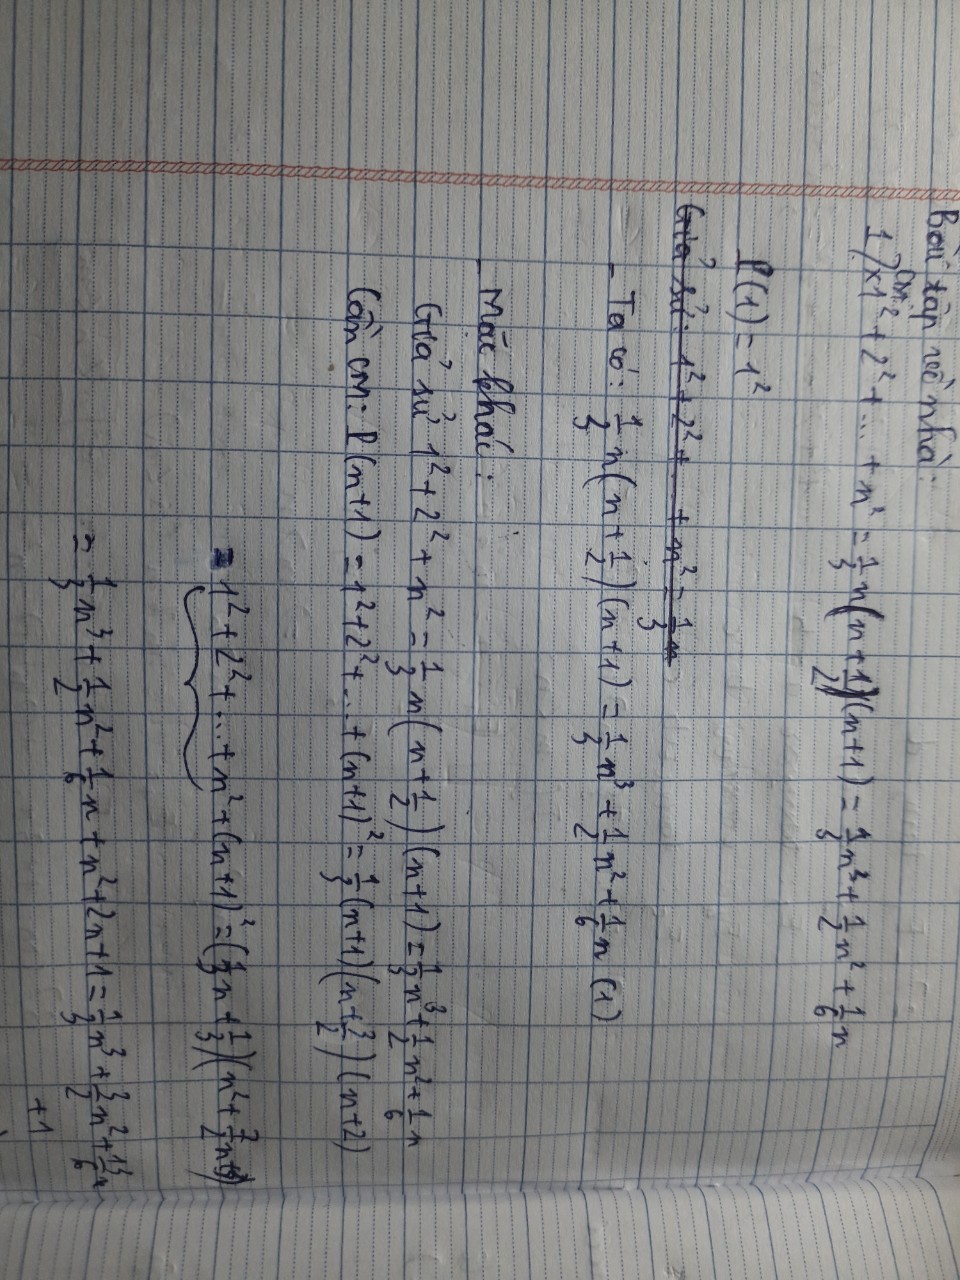 Bài tập về nhà:
CM:
1) 1² + 2² + ... + n² = 1/3 n(n + 1/2)(n+1) = 1/3 n³ + 1/2 n² + 1/6 n
P(1) = 1²
Giả sử: 1² + 2² + ... + n² = 1/3 n
- Ta có: 1/3 n(n + 1/2)(n+1) = 1/3 n³ + 1/2 n² + 1/6 n (1)
- Mặc khác:
Giả sử 1² + 2² + n² = 1/3 n(n + 1/2)(n+1) = 1/3 n³ + 1/2 n² + 1/6 n
Cần CM: P(n+1) = 1² + 2² + ... + (n+1)² = 1/3 (n+1)(n + 3/2)(n+2)
= 1² + 2² + ... + n² + (n+1)² = (1/3 n + 1/3)(n² + 7/2 n + 3)
= 1/3 n³ + 1/2 n² + 1/6 n + n² + 2n + 1 = 1/3 n³ + 3/2 n² + 13/6 n
+ 1